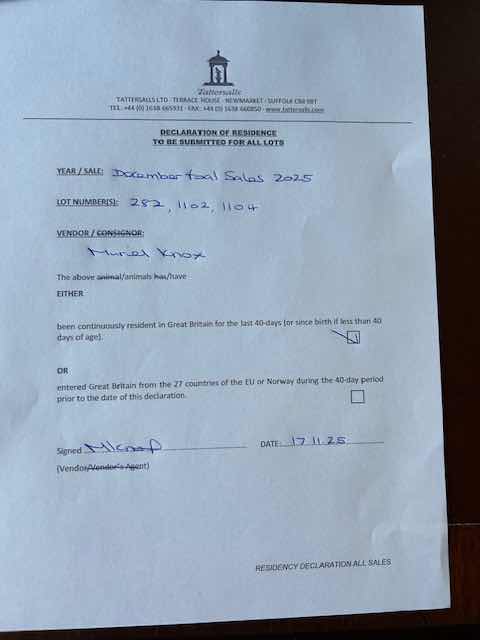 Tattersalls
TATTERSALLS LTD · TERRACE HOUSE · NEWMARKET · SUFFOLK CB8 9BT
TEL. +44 (0) 1638 665931 · FAX: +44 (0) 1638 660850 · www.tattersalls.com
DECLARATION OF RESIDENCE
TO BE SUBMITTED FOR ALL LOTS
YEAR / SALE: December foal Sales 2025
LOT NUMBER(S): 282, 1102, 1104
VENDOR / CONSIGNOR:
Muriel Knox
The above animal/animals has/have
EITHER
been continuously resident in Great Britain for the last 40-days (or since birth if less than 40
days of age).
OR
entered Great Britain from the 27 countries of the EU or Norway during the 40-day period
prior to the date of this declaration.
Signed DATE: 17.11.25
(Vendor/Vendor's Agent)
RESIDENCY DECLARATION ALL SALES